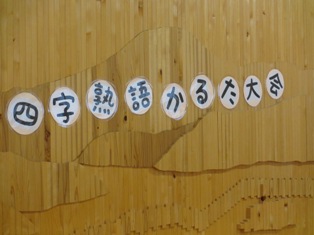 四字熟語かるた大会